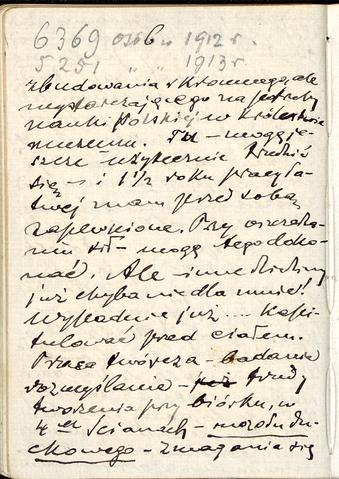 6369 osób w 1912 r.
5251 " " 1913 r.
zbudowania skromnego, ale
wystarczającego na potrzeby
nauki polskiej w Królestwie
muzeum. Tu – mogę je-
szcze użytecznie trudzić
się – i 1½ roku pracy ła-
twej mam przed sobą
zapewnione. Przy oszczędza-
niu sił – mogę tego doko-
nać. Ale – inne dziedziny
już chyba nie dla mnie!
Wypadnie już .... kapi-
tulować przed ciałem.
Praca twórcza – badanie
rozmyślanie – trudy
tworzenia przy biórku, w
4 ech ścianach – mozołu du-
chowego – zmagania się